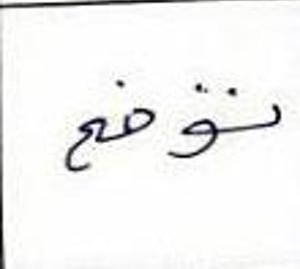 نتوقع